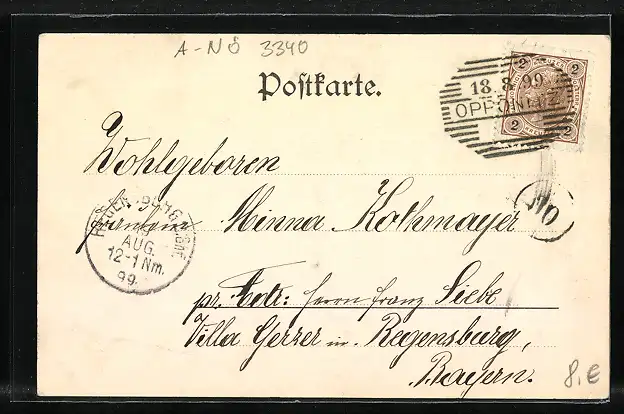 A-NÖ 3340
Postkarte.
2 2
18. 8. 99
OPPONITZ
2 2
Wohlgeboren
Fräulein Minna Kothmayer
REGENSBURG
AUG.
12-1 Nm.
99
pr. Adr: Herrn Franz Siebe
Villa Gerzer in Regensburg,
Bayern.
8.€